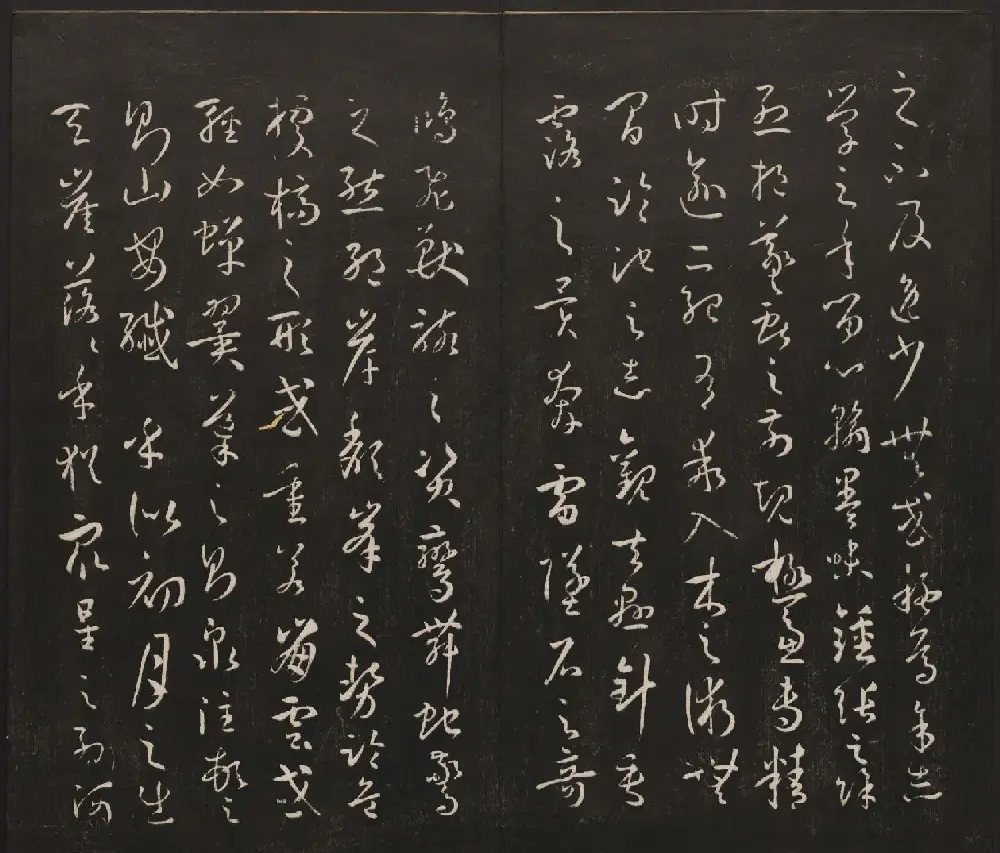 之不及逸少無或疑焉余志
學之年留心翰墨味鍾張之餘
烈挹羲獻之前規極慮專精
時逾二紀有乖入木之術無
間臨池之志觀夫懸針垂
露之異奔雷墜石之奇
鴻飛獸駭之資鸞舞蛇驚
之態絕岸頹峯之勢臨危
據槁之形或重若崩雲或
輕如蟬翼導之則泉注頓之
則山安纖乎似初月之出
天崖落〻乎猶眾星之列河